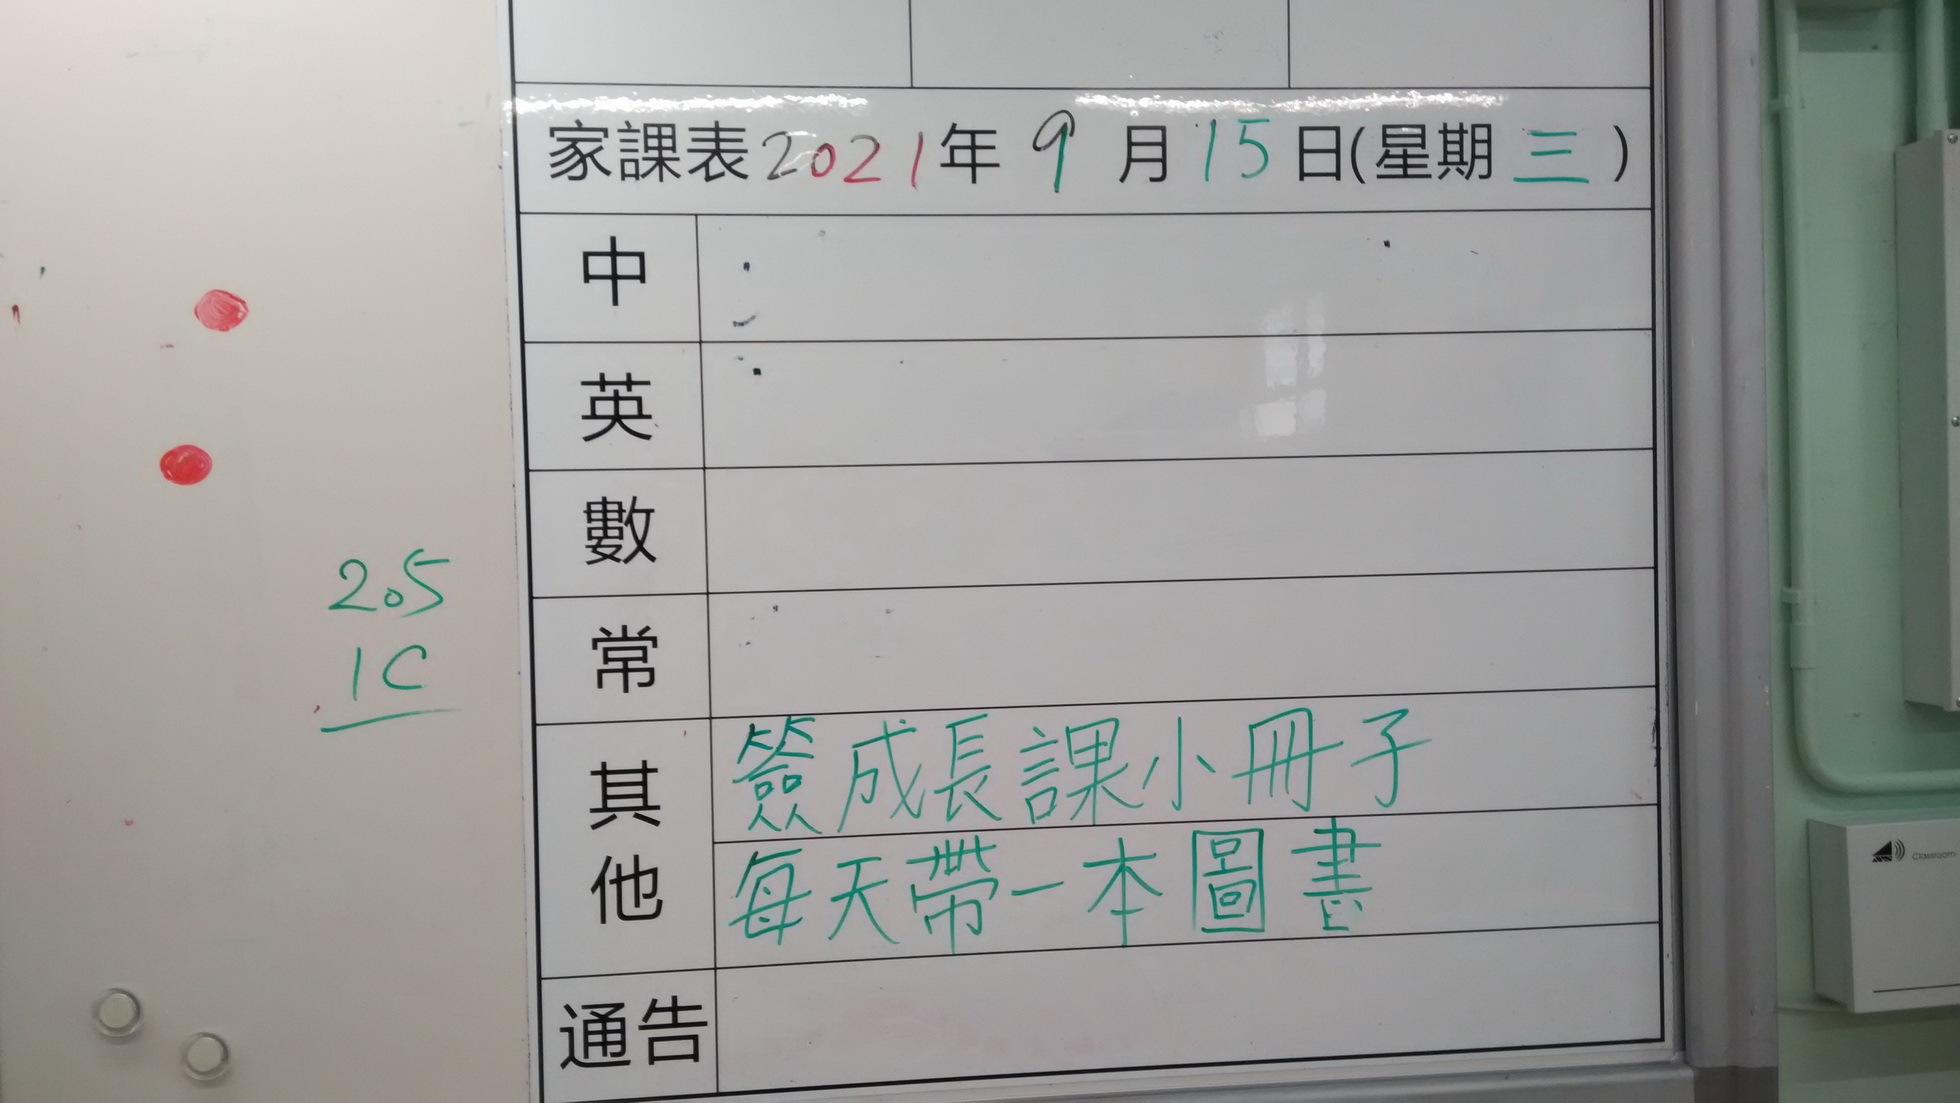 家課表2021年 9 月 15 日(星期 三 )
中
英
數
常
其他
簽成長課小冊子
每天帶一本圖書
通告
205
1C
Classroom